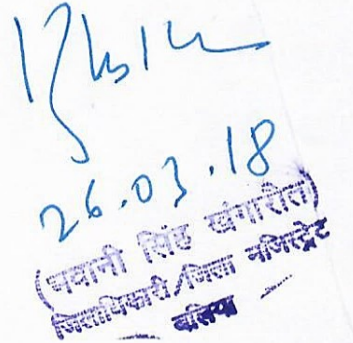 26.03.18
(भवानी सिंह खंगारौत)
जिलाधिकारी/जिला मजिस्ट्रेट
बलिया